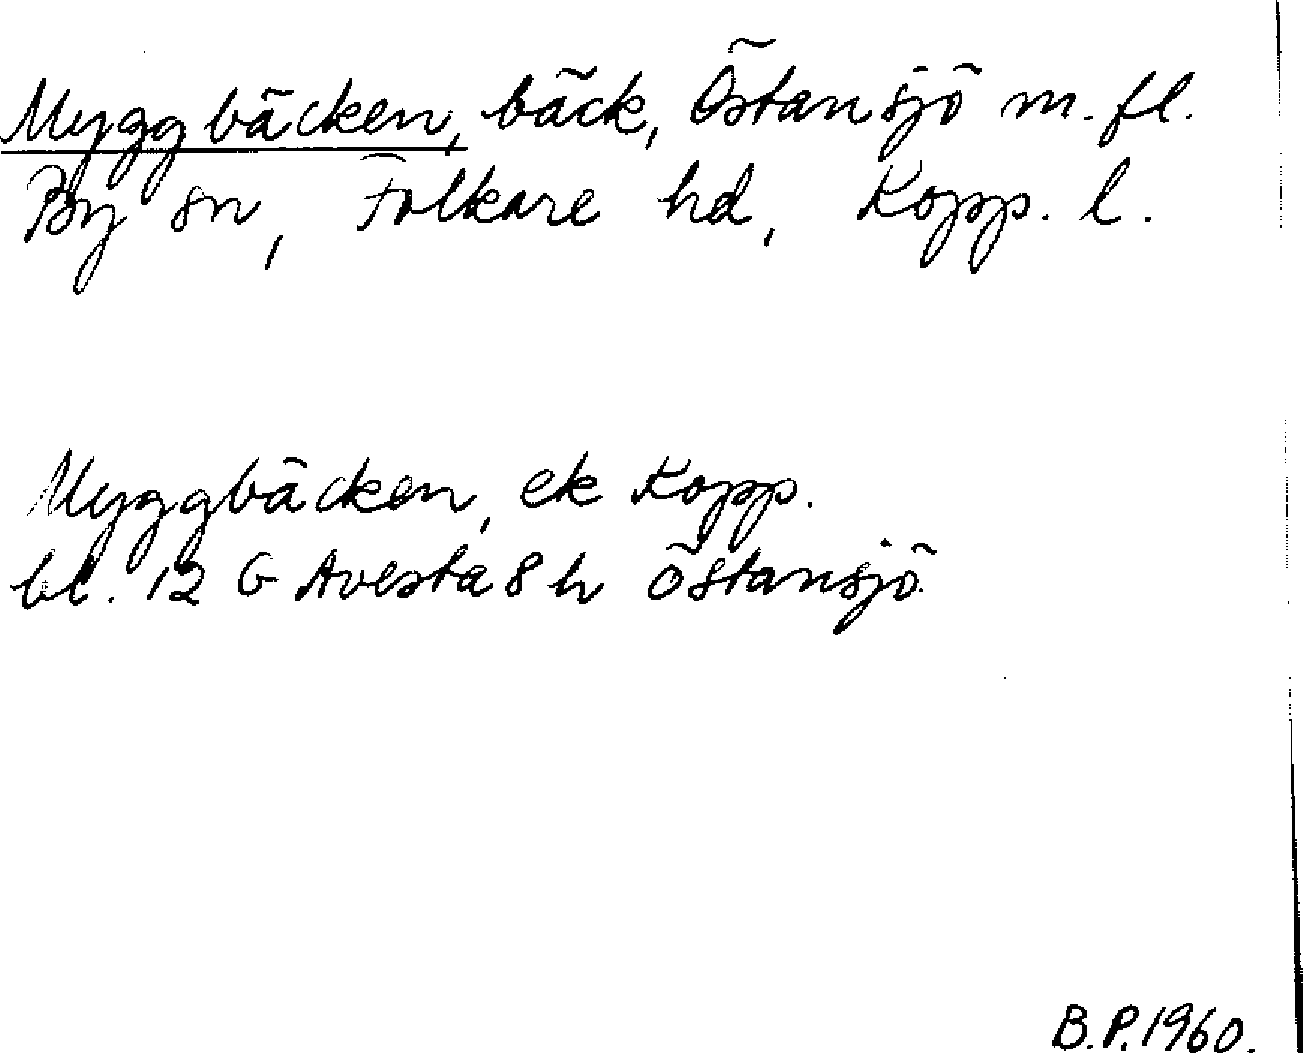 Myggbäcken, bäck, Östansjö m. fl.
By sn, Folkare hd, Kopp. l.
Myggbäcken, ek Kopp.
bl. 12 G Avesta 8 h Östansjö.
B.P. 1960.